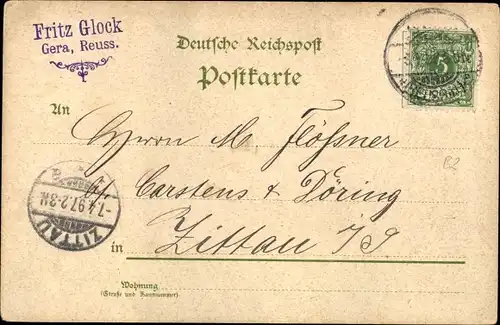 Fritz Glock
Gera, Reuss.
Deutsche Reichspost
Postkarte
An
Herrn M. Flössner
Carstens & Döring
in Zittau
Wohnung
(Straße und Hausnummer)
5
ZITTAU
7.4.97.2-3N.